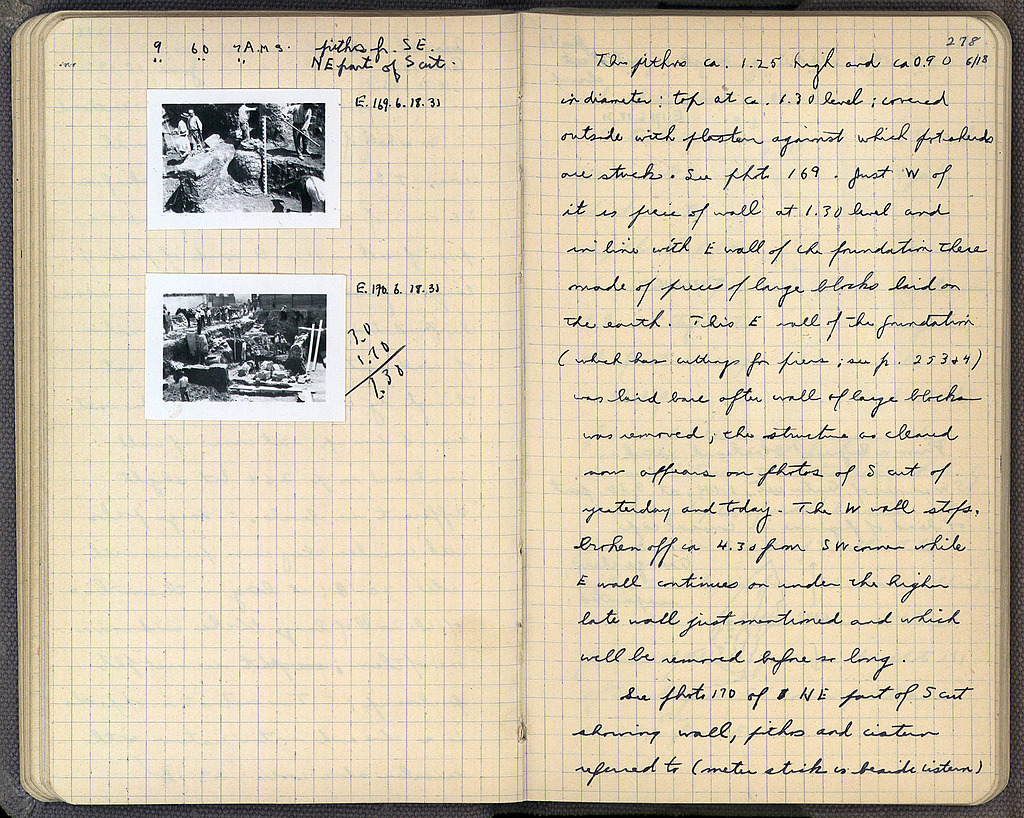 9 60 7 A.M. S. pithos fr. SE.
" " " NE part of S cut.
E. 169. 6. 18. 31
E. 170. 6. 18. 31
3.0
1.70
1.30
278
6/18
The pithos ca. 1.25 high and ca 0.90
in diameter; top at ca. 1.30 level; covered
outside with plaster against which potsherds
are stuck. See photo 169. Just W of
it is piece of wall at 1.30 level and
in line with E wall of the foundation there
made of pieces of large blocks laid on
the earth. This E wall of the foundation
(which has cuttings for piers; see p. 253+4)
was laid bare after wall of large blocks
was removed; the structure as cleared
now appears on photos of S cut of
yesterday and today. The W wall stops,
broken off ca 4.30 from SW corner while
E wall continues on under the higher
late wall just mentioned and which
will be removed before so long.
See photo 170 of NE part of S cut
showing wall, pithos and cistern
referred to (meter stick is beside cistern)